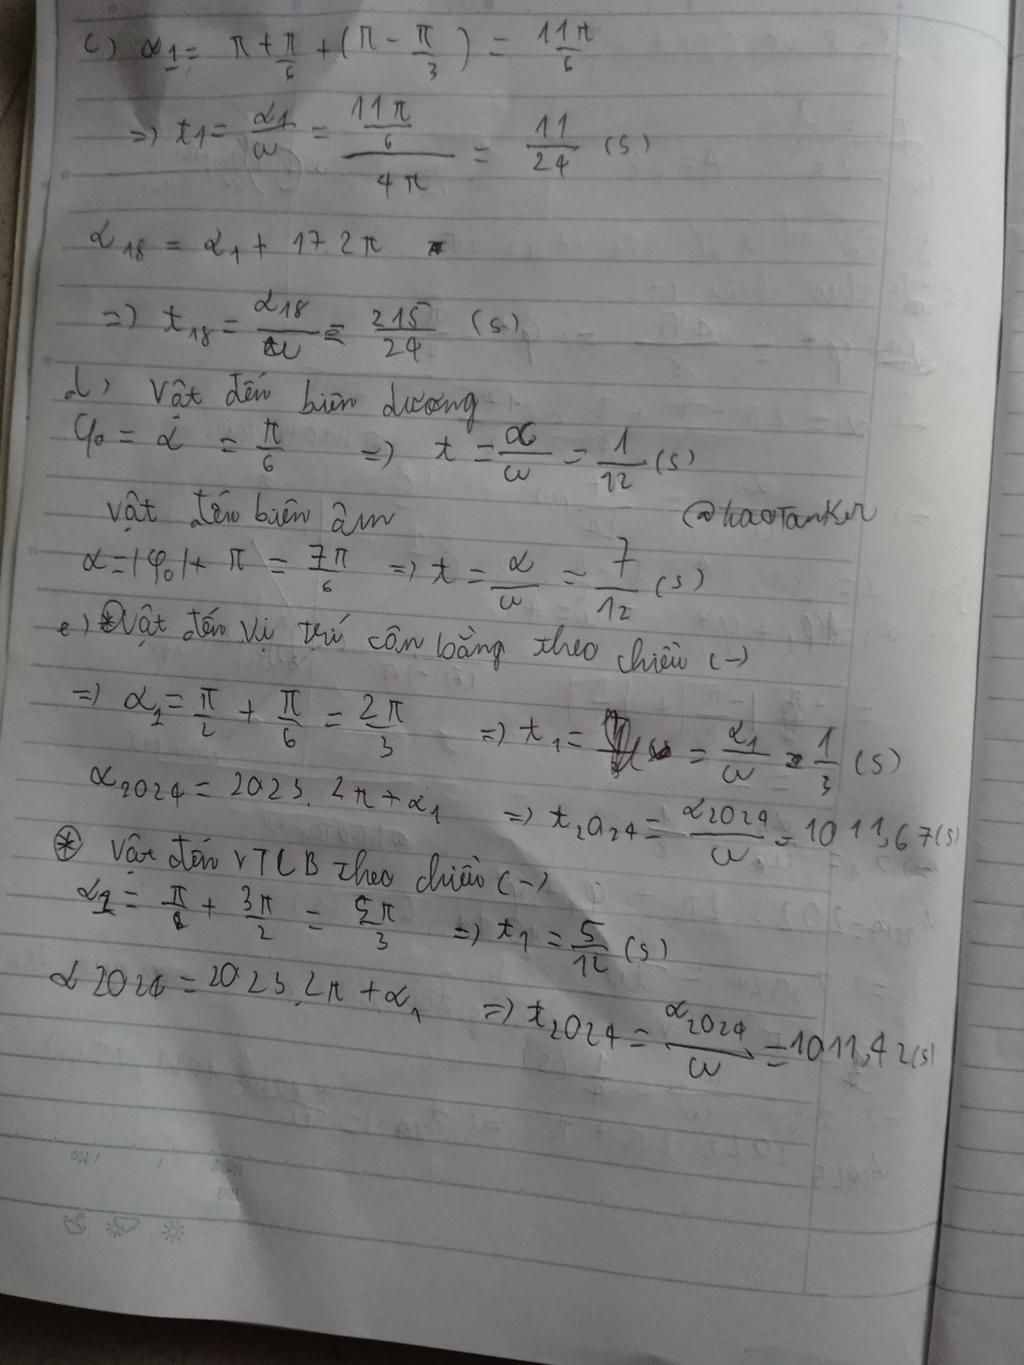 c) α₁ = π + π/6 + (π - π/3) = 11π/6
=> t1 = α1/ω = (11π/6)/(4π) = 11/24 (s)
α₁₈ = α₁ + 17.2π
=> t₁₈ = α₁₈/ω = 215/24 (s)
d) Vật đến biên dương
φ₀ = α = π/6 => t = α/ω = 1/12 (s)
Vật đến biên âm
@haoTanKer
α = |φ₀| + π = 7π/6 => t = α/ω = 7/12 (s)
e) ⊛ Vật đến vị trí cân bằng theo chiều (-)
=> α₁ = π/2 + π/6 = 2π/3 => t₁ = = α1/ω = 1/3 (s)
α₂₀₂₄ = 2023.2π + α₁ => t₂₀₂₄ = α₂₀₂₄/ω = 1011,67(s)
⊛ Vật đến VTCB theo chiều (-)
α₁ = π/6 + 3π/2 = 5π/3 => t₁ = 5/12 (s)
α2024 = 2023.2π + α₁ => t₂₀₂₄ = α₂₀₂₄/ω = 1011,42(s)